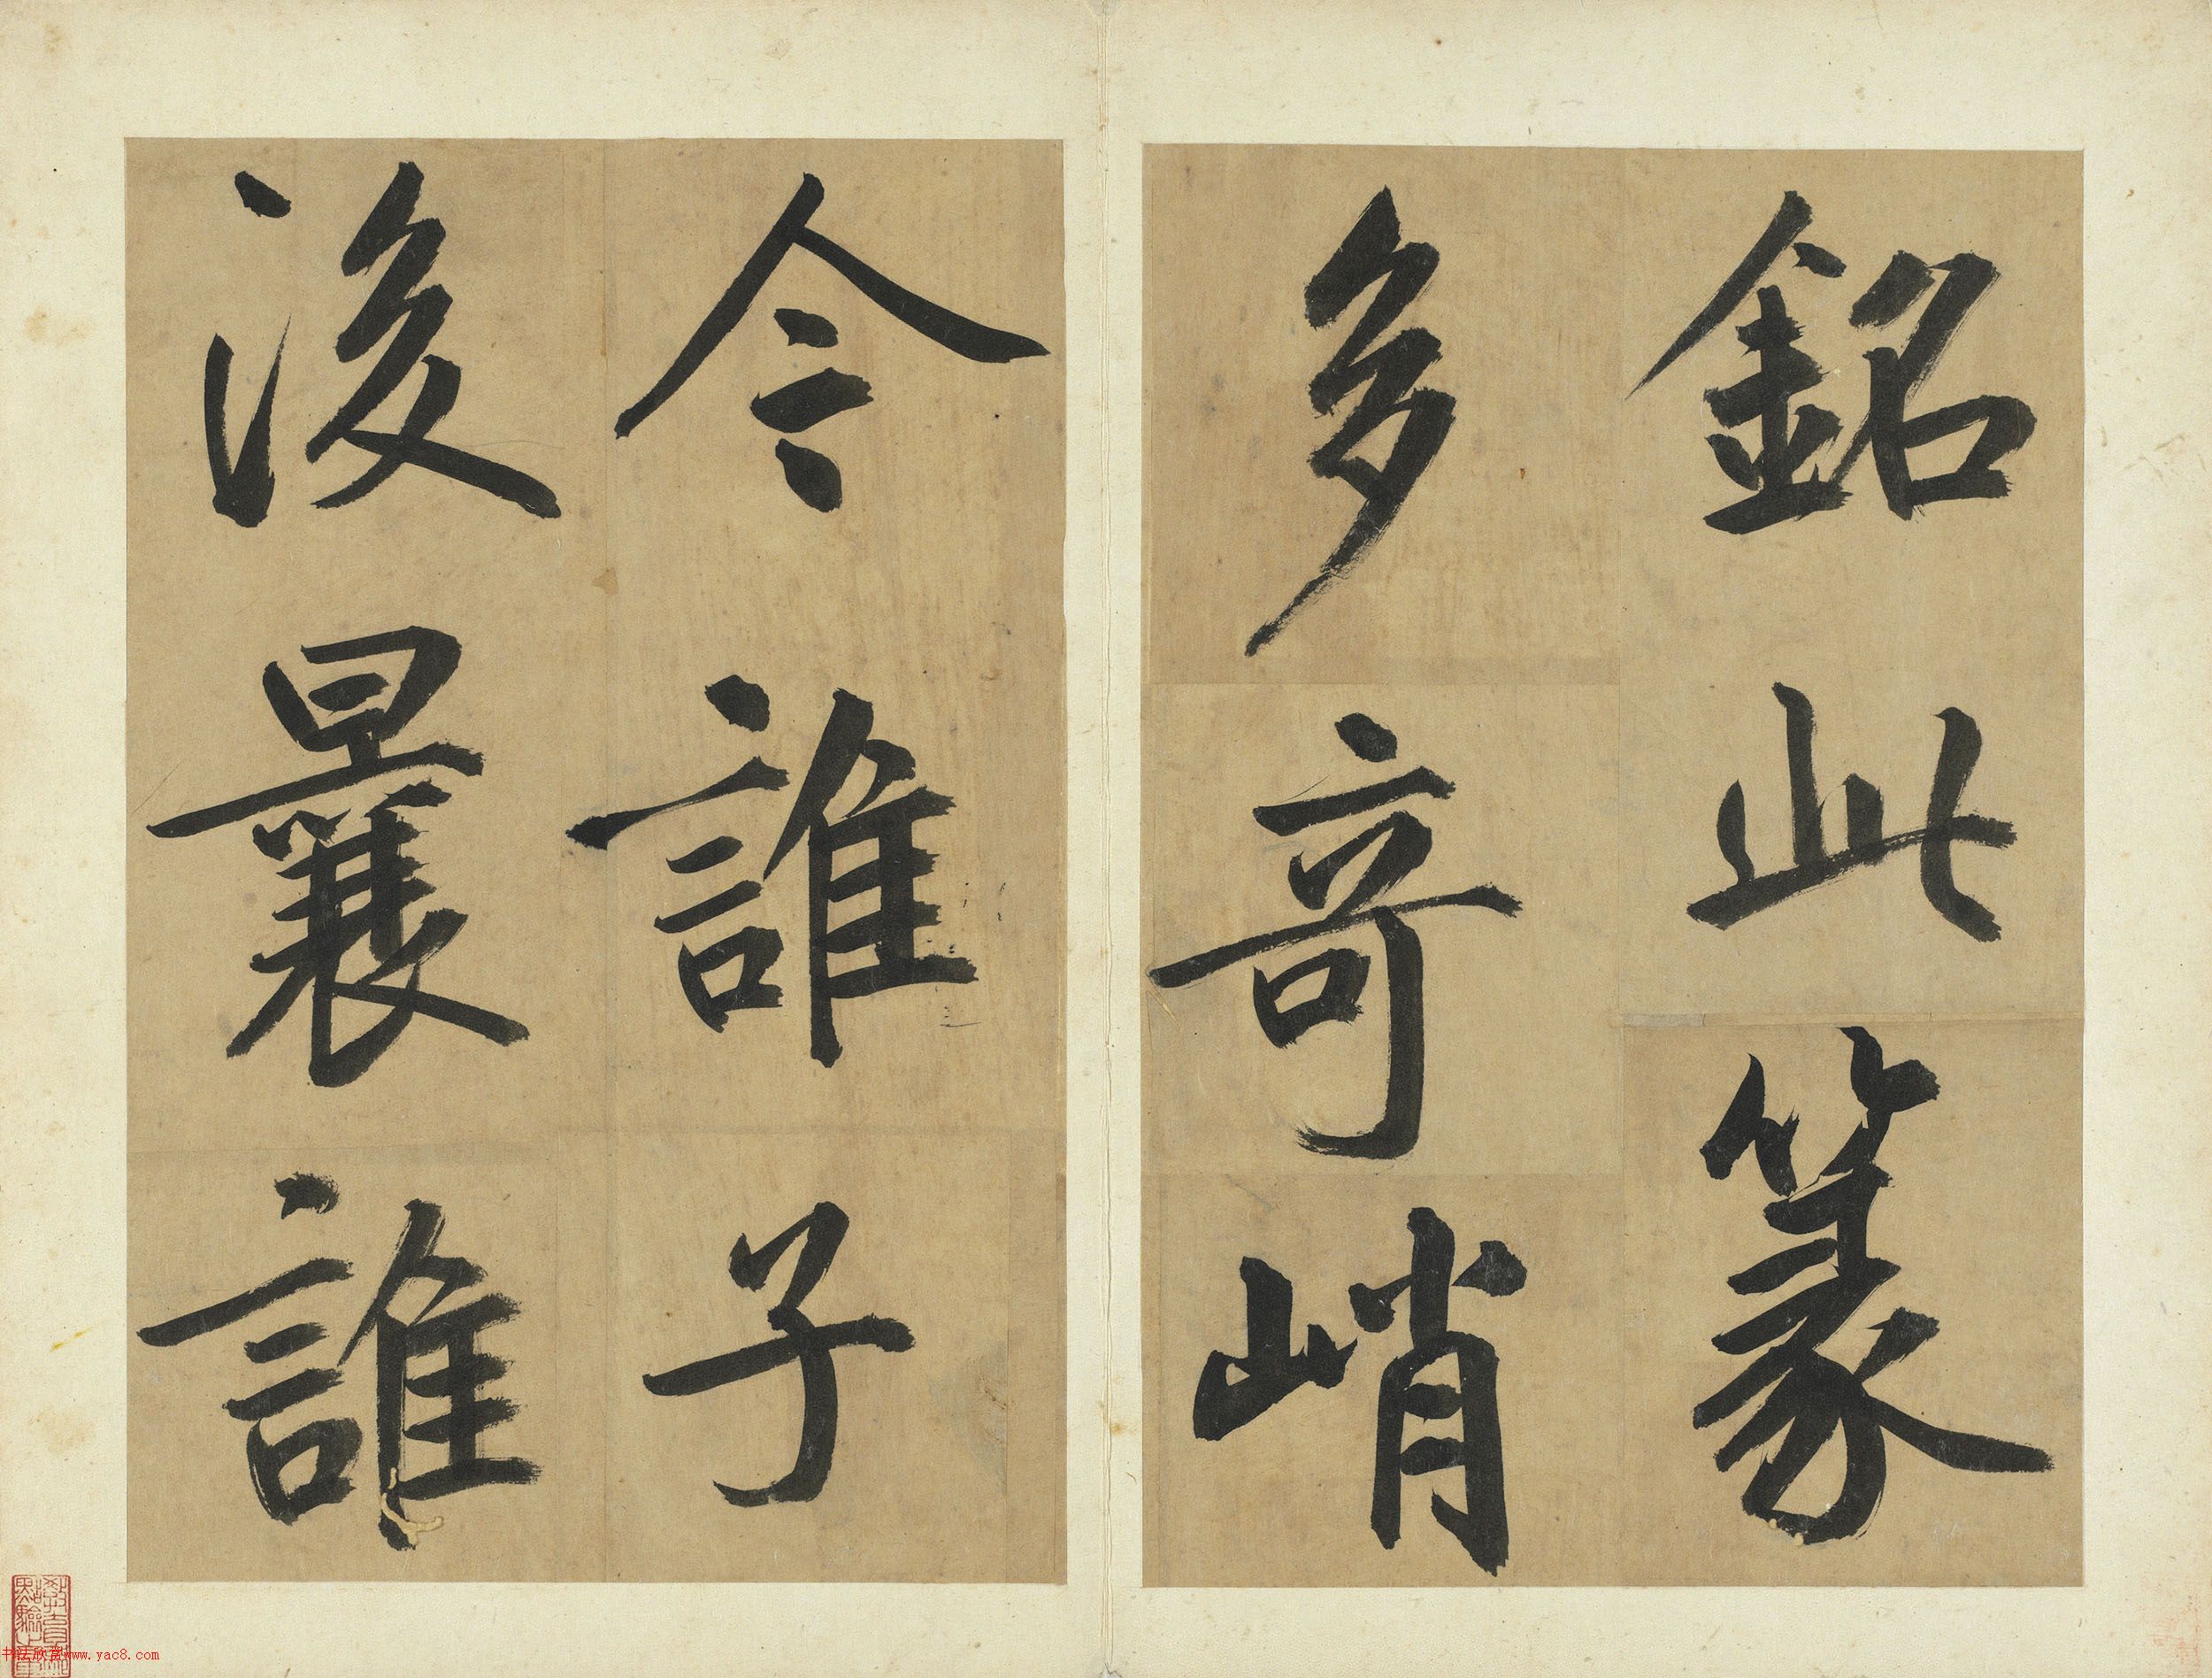 銘此篆
多奇峭
令誰子
後曩誰
书法欣赏www.yac8.com